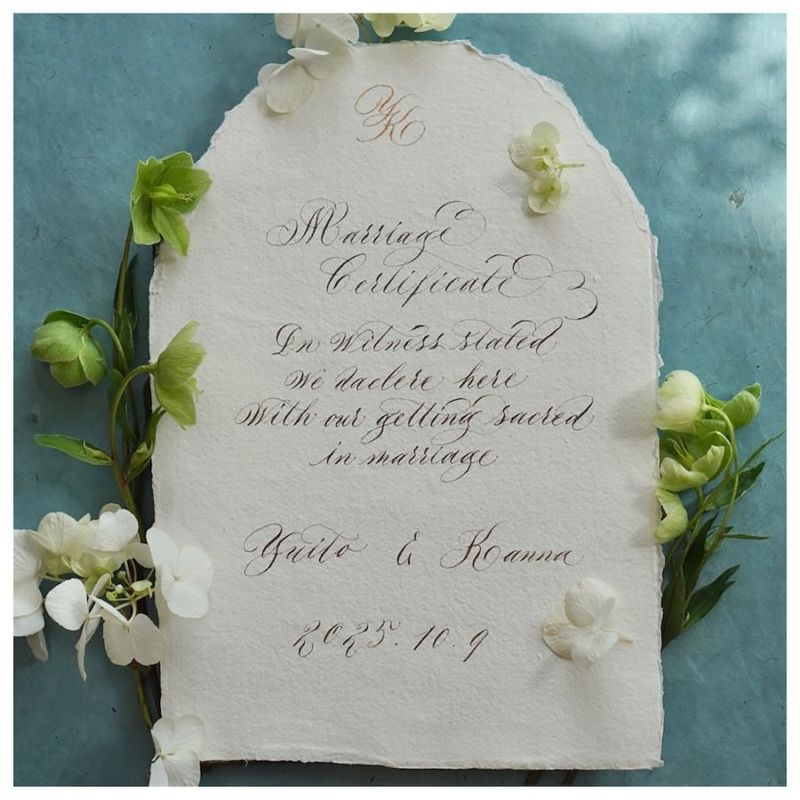 YK
Marriage
Certificate
In Witness stated
We daclere here
With our getting sacred
in marriage
Yuito & Kanna
2025.10.9